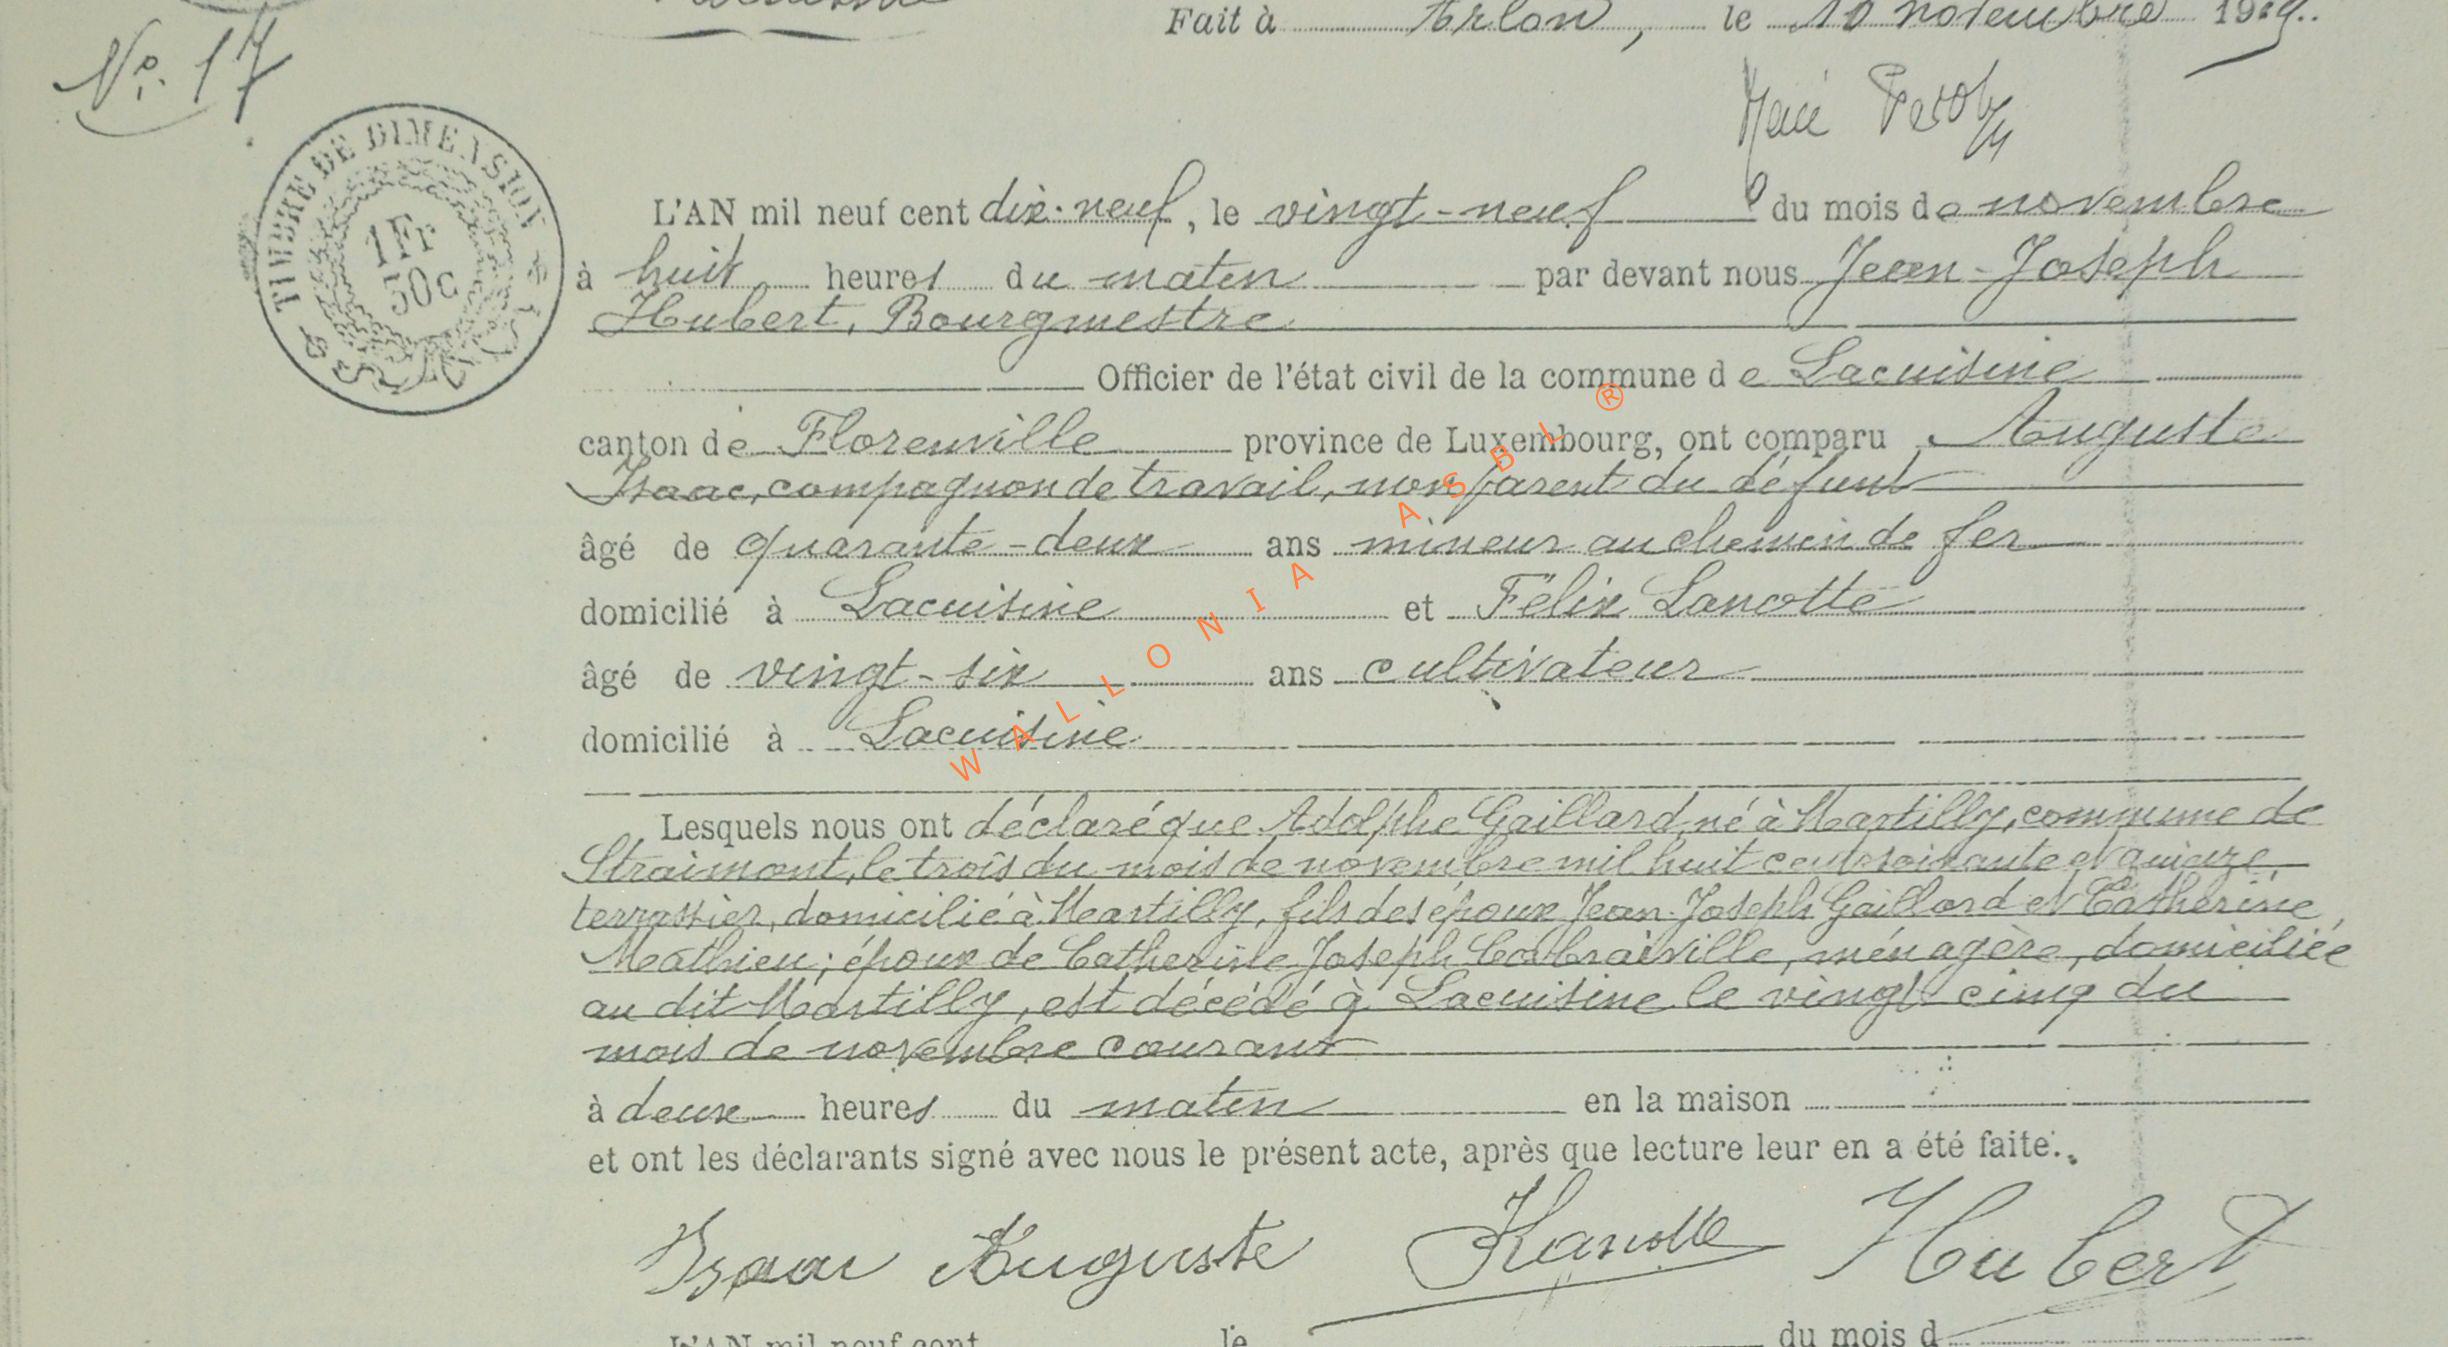 Fait à Arlon, le 10 novembre 1919.
No. 17
TIMBRE DE DIMENSION
1 Fr
50 c
L'AN mil neuf cent dix-neuf, le vingt-neuf du mois de novembre
à huit heures du matin par devant nous Jean-Joseph
Hubert, Bourgmestre
Officier de l'état civil de la commune de Lacuisine
canton de Florenville province de Luxembourg, ont comparu Auguste
Isaac, compagnon de travail, non parent du défunt
âgé de quarante-deux ans mineur au chemin de fer
domicilié à Lacuisine et Félix Lanotte
âgé de vingt-six ans cultivateur
domicilié à Lacuisine
WALLONIA ASBL ®
Lesquels nous ont déclaré que Adolphe Gaillard, né à Martilly, commune de
Straimont, le trois du mois de novembre mil huit cent soixante et quinze,
terrassier, domicilié à Martilly, fils des époux Jean-Joseph Gaillard et Catherine
Mathieu; époux de Catherine Joseph ménagère, domiciliée
au dit Martilly, est décédé à Lacuisine le vingt cinq du
mois de novembre courant
à deux heures du matin en la maison
et ont les déclarants signé avec nous le présent acte, après que lecture leur en a été faite.
Isaac Auguste Lanotte Hubert
L'AN mil neuf cent le du mois d